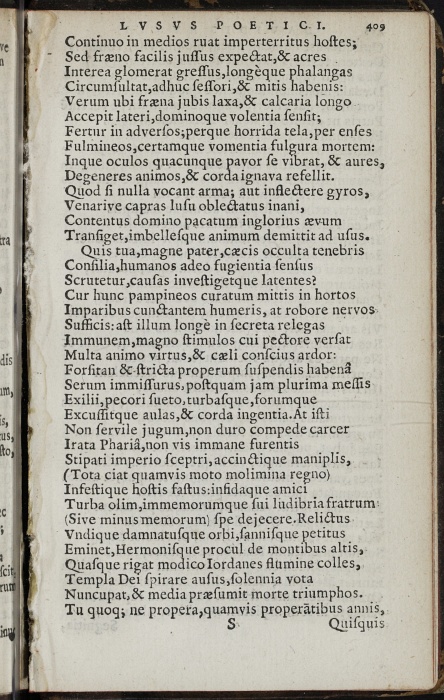 LVSVS POETICI. 409
Continuo in medios ruat imperterritus hostes;
Sed fræno facilis jussus expectat, & acres
Interea glomerat gressus, longèque phalangas
Circumsultat, adhuc sessori, & mitis habenis:
Verum ubi fræna jubis laxa, & calcaria longo
Accepit lateri, dominoque volentia sensit;
Fertur in adversos; perque horrida tela, per enses
Fulmineos, certamque vomentia fulgura mortem:
Inque oculos quacunque pavor se vibrat, & aures,
Degeneres animos, & corda ignava refellit.
Quod si nulla vocant arma; aut inflectere gyros,
Venarive capras lusu oblectatus inani,
Contentus domino pacatum inglorius ævum
Transiget, imbellesque animum demittit ad usus.
Quis tua, magne pater, cæcis occulta tenebris
Consilia, humanos adeo fugientia sensus
Scrutetur, causas investigetque latentes?
Cur hunc pampineos curatum mittis in hortos
Imparibus cunctantem humeris, at robore nervos
Sufficis: ast illum longè in secreta relegas
Immunem, magno stimulos cui pectore versat
Multa animo virtus, & cæli conscius ardor:
Forsitan & stricta properum suspendis habenâ
Serum immissurus, postquam jam plurima messis
Exilii, pecori sueto, turbasque, forumque
Excussitque aulas, & corda ingentia. At isti
Non servile jugum, non duro compede carcer
Irata Phariâ, non vis immane furentis
Stipati imperio sceptri, accinctique maniplis,
(Tota ciat quamvis moto molimina regno)
Infestique hostis fastus: infidaque amici
Turba olim, immemorumque sui ludibria fratrum:
(Sive minus memorum) spe dejecere. Relictus
Vndique damnatusque orbi, sannisque petitus
Eminet, Hermonisque procul de montibus altis,
Quasque rigat modico Iordanes flumine colles,
Templa Dei spirare ausus, solennia vota
Nuncupat, & media præsumit morte triumphos.
Tu quoq; ne propera, quamvis properātibus annis,
S Quisquis